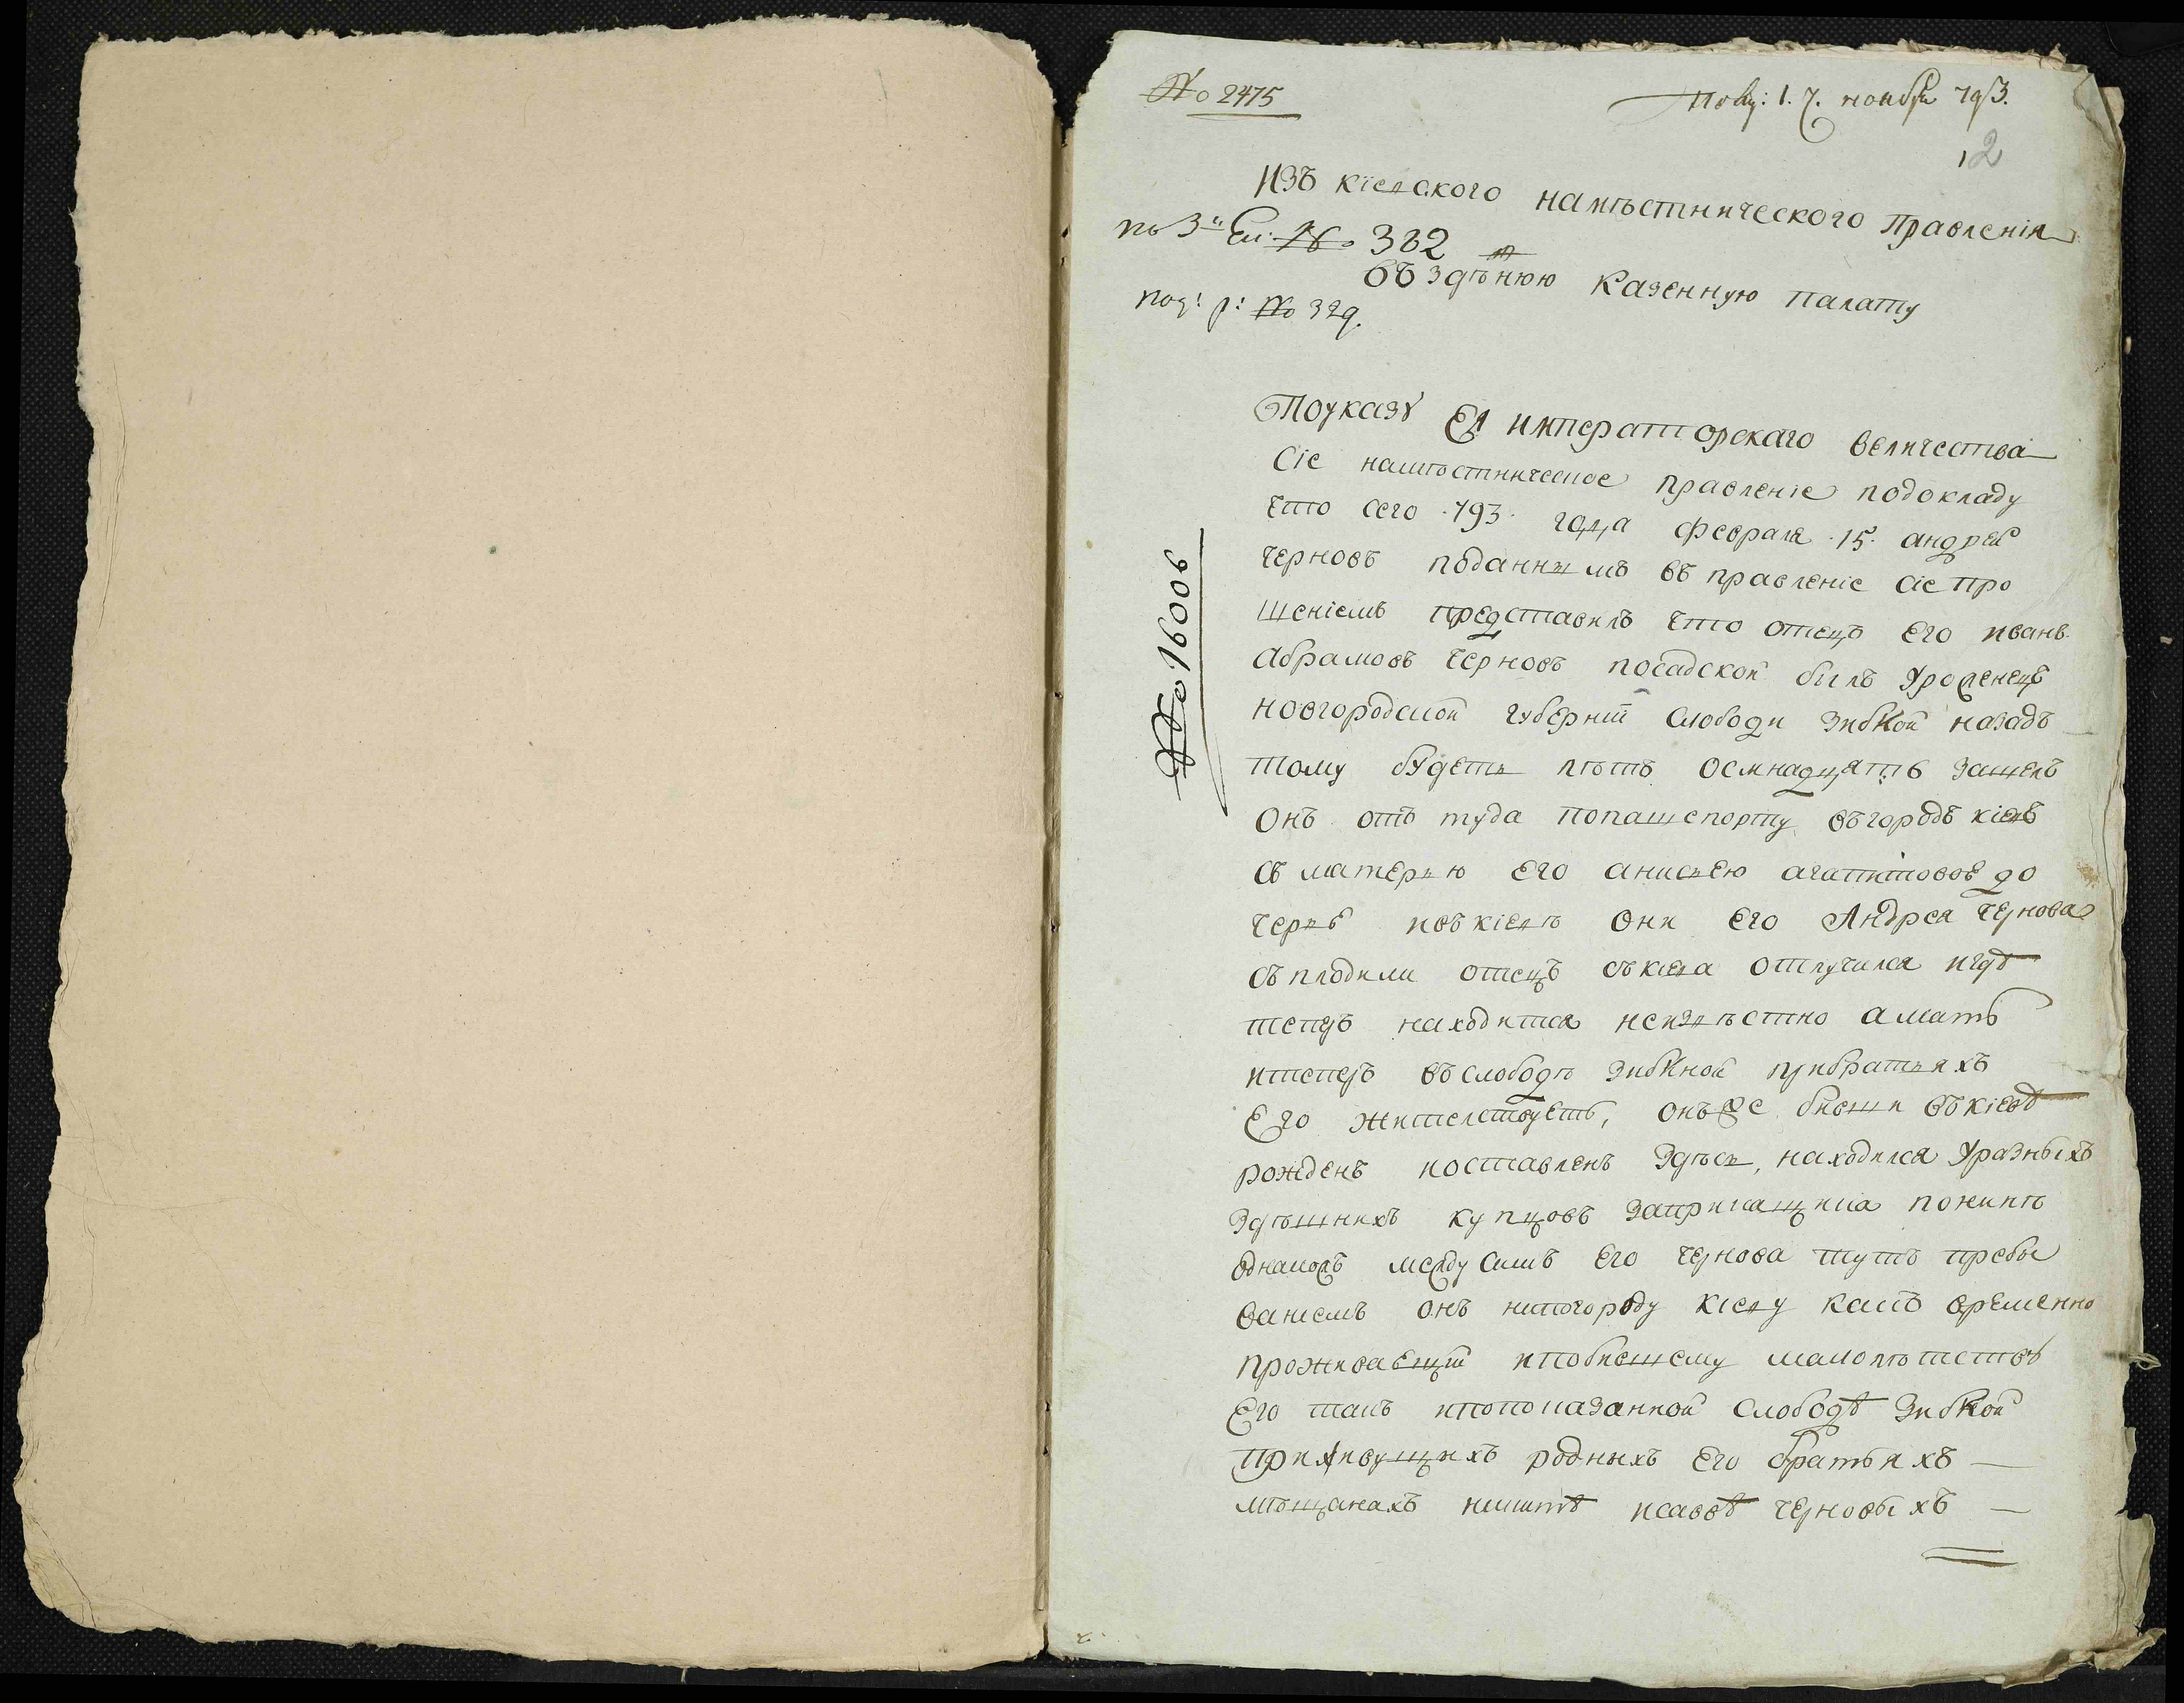 № 2475
Полу: 17. ноября 793.
2
Изъ кіевского намѣстнического Правленія
по 3й Еп: № 382
въ здѣшнюю Казенную палату
под: р: № 329.
№ 16006
По указу Ея Императорскаго величества
Сіе намѣстническое правленіе по докладу
что сего 793 года февраля 15 андрей
черновъ поданнымъ въ правленіе сіе про
шеніемъ представилъ что отецъ его иванъ
абрамовъ черновъ посадской былъ уроженецъ
новгородской губерніи слободи Зибкой назадъ
тому будетъ лѣтъ осмнадцять зашелъ
онъ отъ туда по пашепорту въ городъ кіевъ
съ матерью его анисьею агапитовое до
черьѣ и въ кіевѣ они его Андрея чернова
съплодили отецъ съ кіева отлучился и гдѣ
теперъ находится неизвѣстно а мать
и теперъ въ слободѣ Зибкной при братьяхъ
Его жителствуетъ, онъ же бивши въ кіевѣ
рожденъ и оставленъ здѣсь, находился у разныхъ
здѣшнихъ купцовъ за прикащика по ниннѣ
однакожъ между симъ его чернова тутъ пребы
ваніемъ онъ ни по городу кіеву какъ временно
проживаещій и по бившему малолѣтствѣ
Его такъ и по показанной слободѣ Зибкой
при живущихъ родныхъ его братьяхъ —
мѣщанахъ никитѣ и саввѣ черновыхъ —